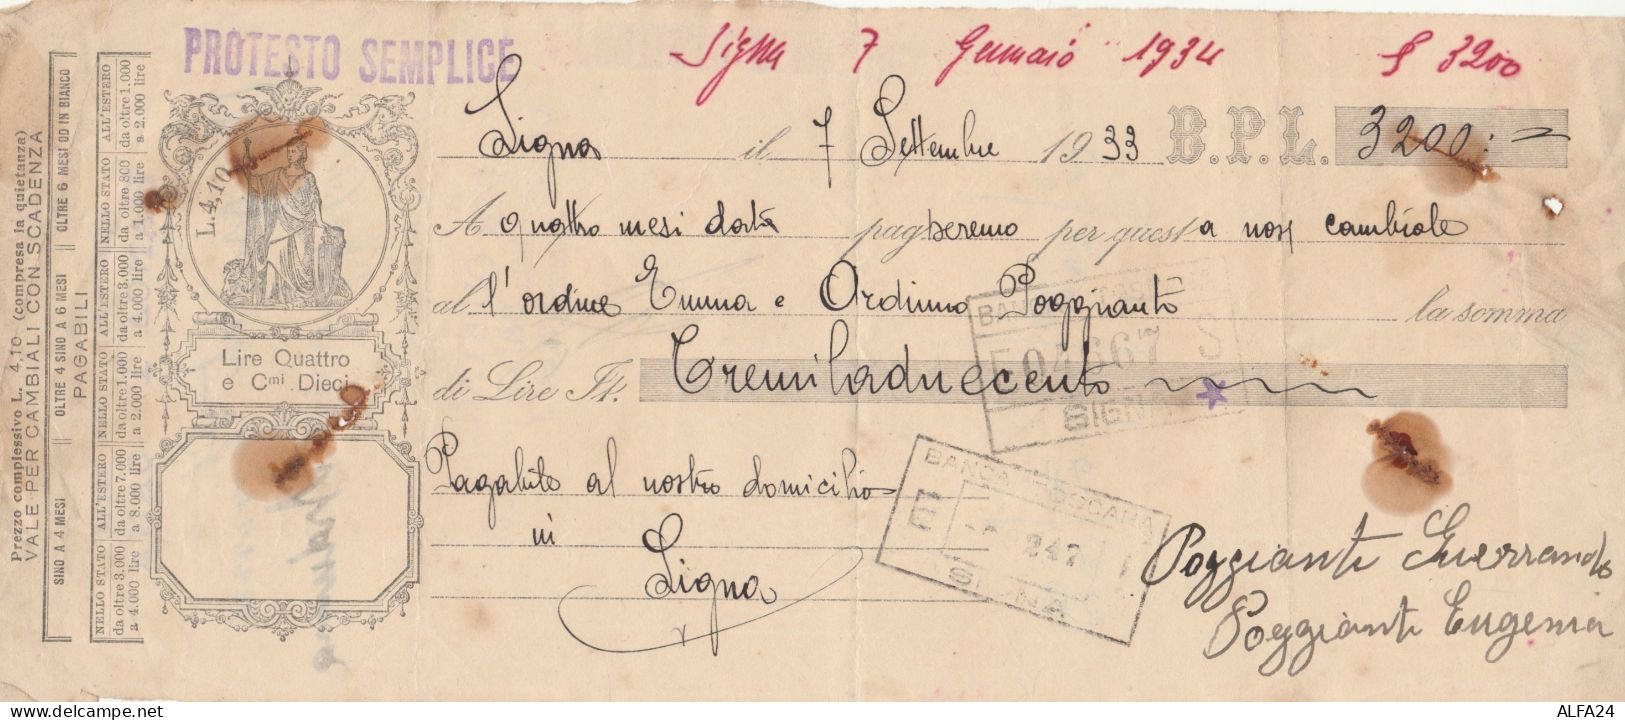 PROTESTO SEMPLICE
Signa 7 Gennaio 1934 £ 3200
Signa il 7 Settembre 1933 B.P.L. 3200:=
A quattro mesi data pagheremo per questa nos cambiale
al l'ordine Emma e Ordinno Poggianti la somma
di Lire It. Tremiladuecento
Pagabile al nostro domicilio
in
Signa
Poggianti Guerrando
Poggianti Eugenia
BANCA
SIGNA
BANCA TOSCANA
E 247
SIGNA
L. 4,10
Lire Quattro
e Cmi Dieci
Prezzo complessivo L. 4,10 (compresa la quietanza)
VALE PER CAMBIALI CON SCADENZA
SINO A 4 MESI OLTRE 4 SINO A 6 MESI OLTRE 6 MESI OD IN BIANCO
PAGABILI
NELLO STATO
da oltre 3.000
a 4.000 lire
ALL'ESTERO
da oltre 7.000
a 8.000 lire
NELLO STATO
da oltre 1.000
a 2.000 lire
ALL'ESTERO
da oltre 3.000
a 4.000 lire
NELLO STATO
da oltre 800
a 1.000 lire
ALL'ESTERO
da oltre 1.000
a 2.000 lire
www.delcampe.net
ALFA24